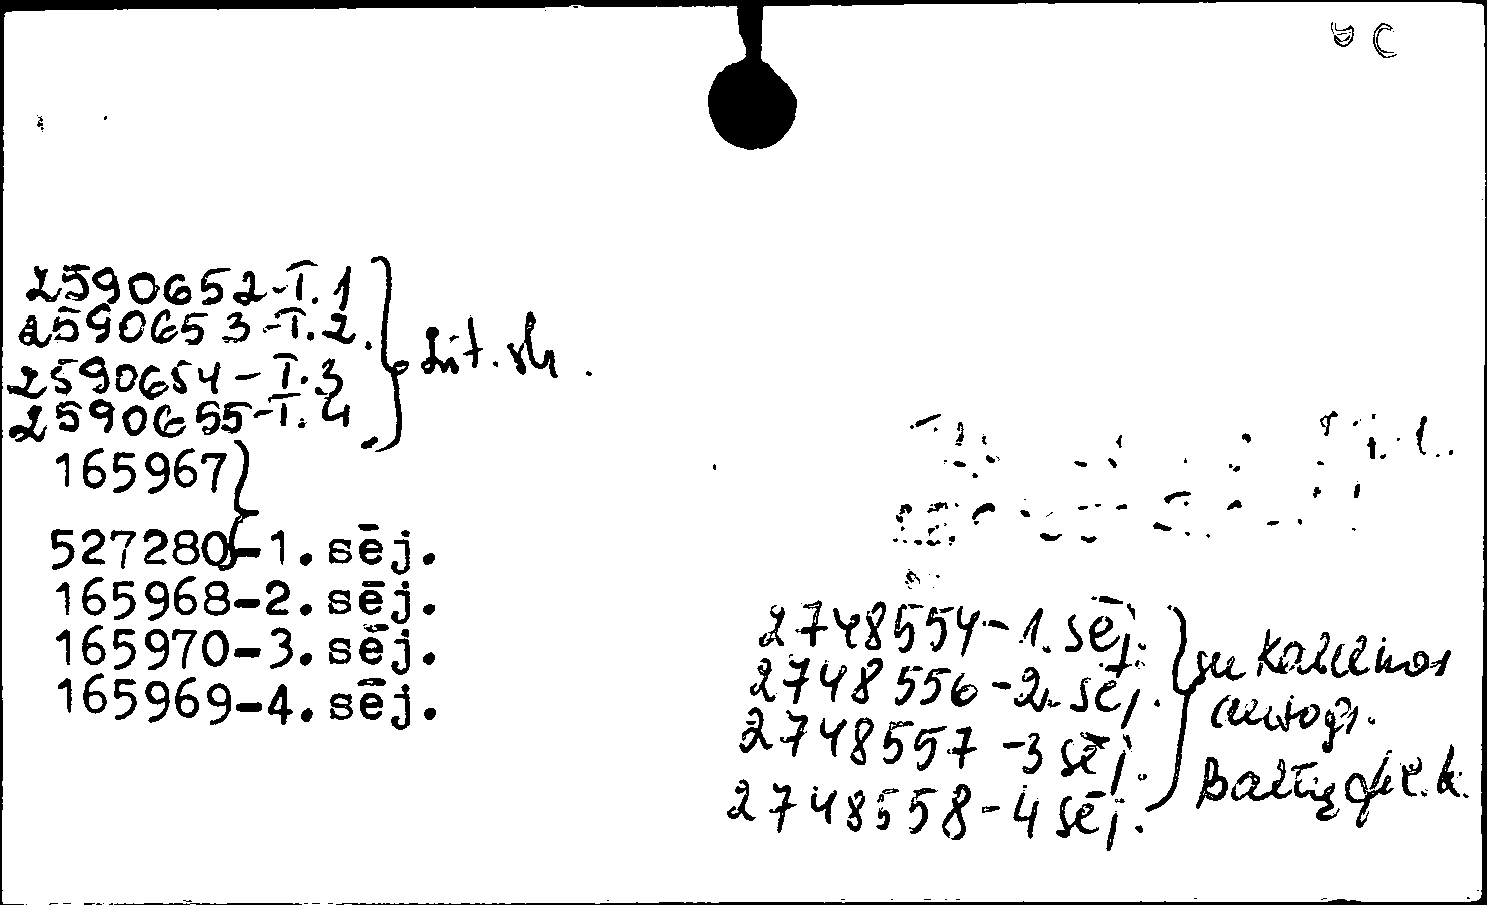 C
2590652-T.1
2590653-T.2.
2590654-T.3
2590655-T.4
Lit. sk.
165967
527280-1.sēj.
165968-2.sēj.
165970-3.sēj.
165969-4.sēj.
2748554-1.sēj.
2748556-2.sēj.
2748557-3 sēj.
2748558-4 sēj.
su Kalnciema
autogr.
Baltų